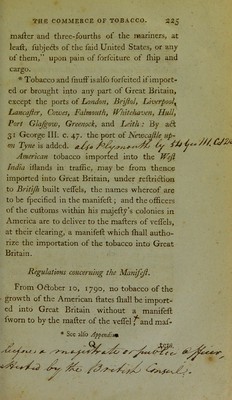 THE COMMERCE OF TOBACCO. 225
maſter and three-fourths of the mariners, at
leaſt, ſubjects of the ſaid United States, or any
of them," upon pain of forfeiture of ſhip and
cargo.
* Tobacco and ſnuff is alſo forfeited if import-
ed or brought into any part of Great Britain,
except the ports of London, Briſtol, Liverpool,
Lancaſter, Cowes, Falmouth, Whitehaven, Hull,
Port Glaſgow, Greenock, and Leith: By act
31 George III. c. 47. the port of Newcaſtle up-
on Tyne is added. also Plymouth by 34 Geo III.
American tobacco imported into the Weſt
India iſlands in traffic, may be from thence
imported into Great Britain, under reſtriction
to Britiſh built veſſels, the names whereof are
to be ſpecified in the manifeſt; and the officers
of the cuſtoms within his majeſty's colonies in
America are to deliver to the maſters of veſſels,
at their clearing, a manifeſt which ſhall autho-
rize the importation of the tobacco into Great
Britain.
Regulations concerning the Manifeſt.
From October 10, 1790, no tobacco of the
growth of the American ſtates ſhall be import-
ed into Great Britain without a manifeſt
ſworn to by the maſter of the veſſel; and maſ-
* See alſo Appendix
ters
before a magistrate or public officer,
attested by the British Consul.